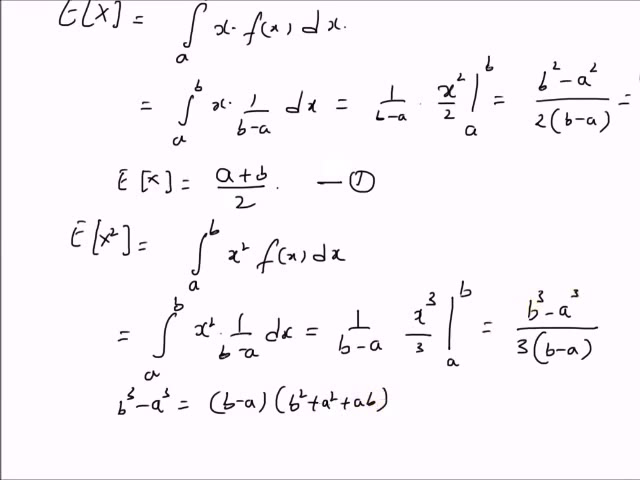 E[X] = ∫_a x· f(x) dx.
= ∫_a^b x· 1/(b-a) dx = 1/(b-a) · x²/2 |_a^b = (b²-a²)/(2(b-a)) =
E[X] = (a+b)/2. — ①
E[X²] = ∫_a^b x² f(x) dx
= ∫_a^b x²· 1/(b-a) dx = 1/(b-a) x³/3 |_a^b = (b³-a³)/(3(b-a))
b³-a³ = (b-a)(b²+a²+ab)